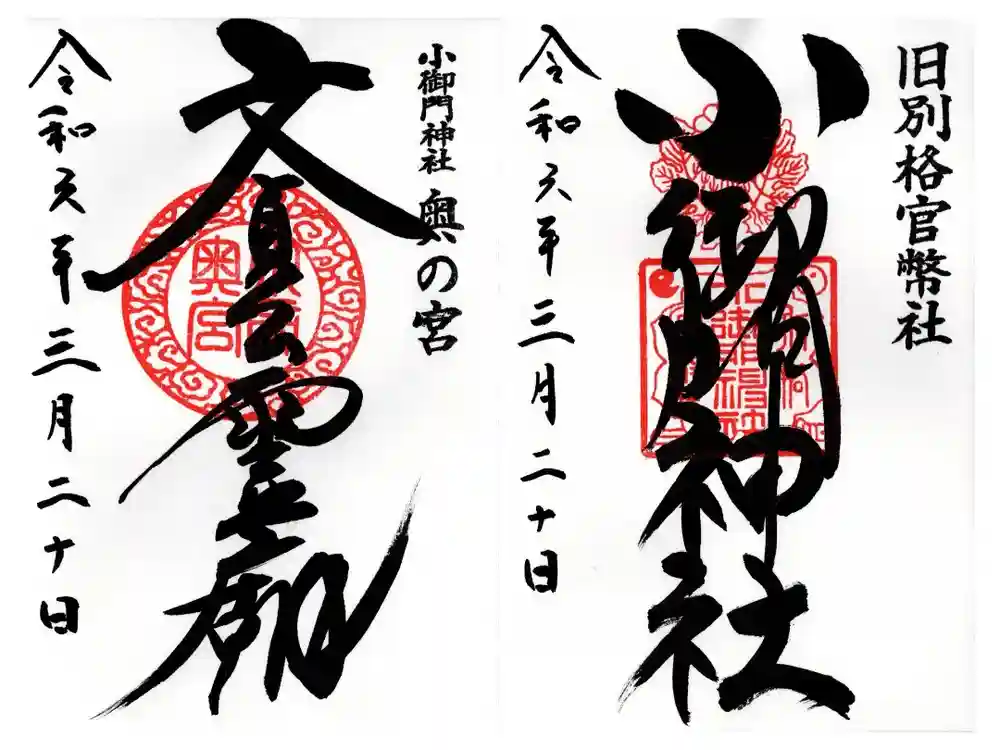 旧別格官幣社
小御門神社
令和六年三月二十日
小御門神社 奥の宮
文貞公霊廟
奥宮
令和六年三月二十日